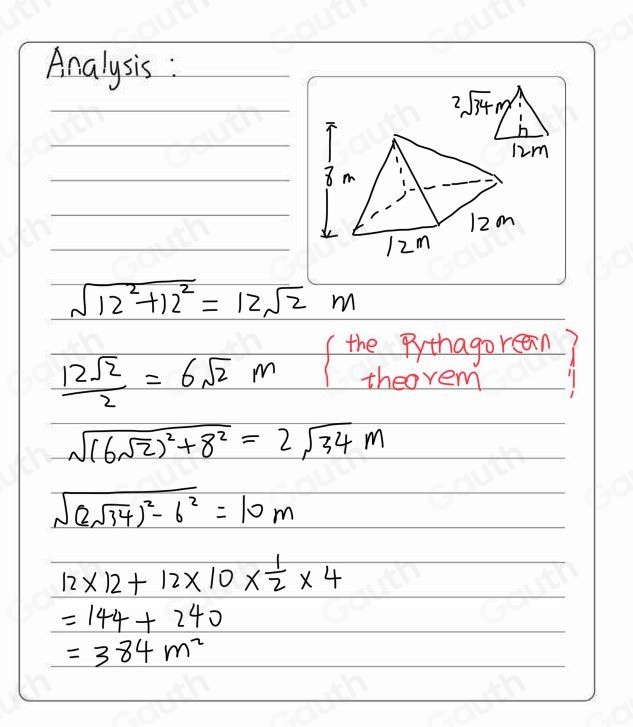 Analysis :
2√34 m
12m
8 m
12m
12m
√12²+12² = 12√2 m
12√2/2 = 6√2 m
{ the Pythagorean }
theorem
√(6√2)²+8² = 2√34 m
√(2√34)²-6² = 10 m
12×12+ 12×10 ×1/2 × 4
= 144 + 240
= 384 m²
Gauth